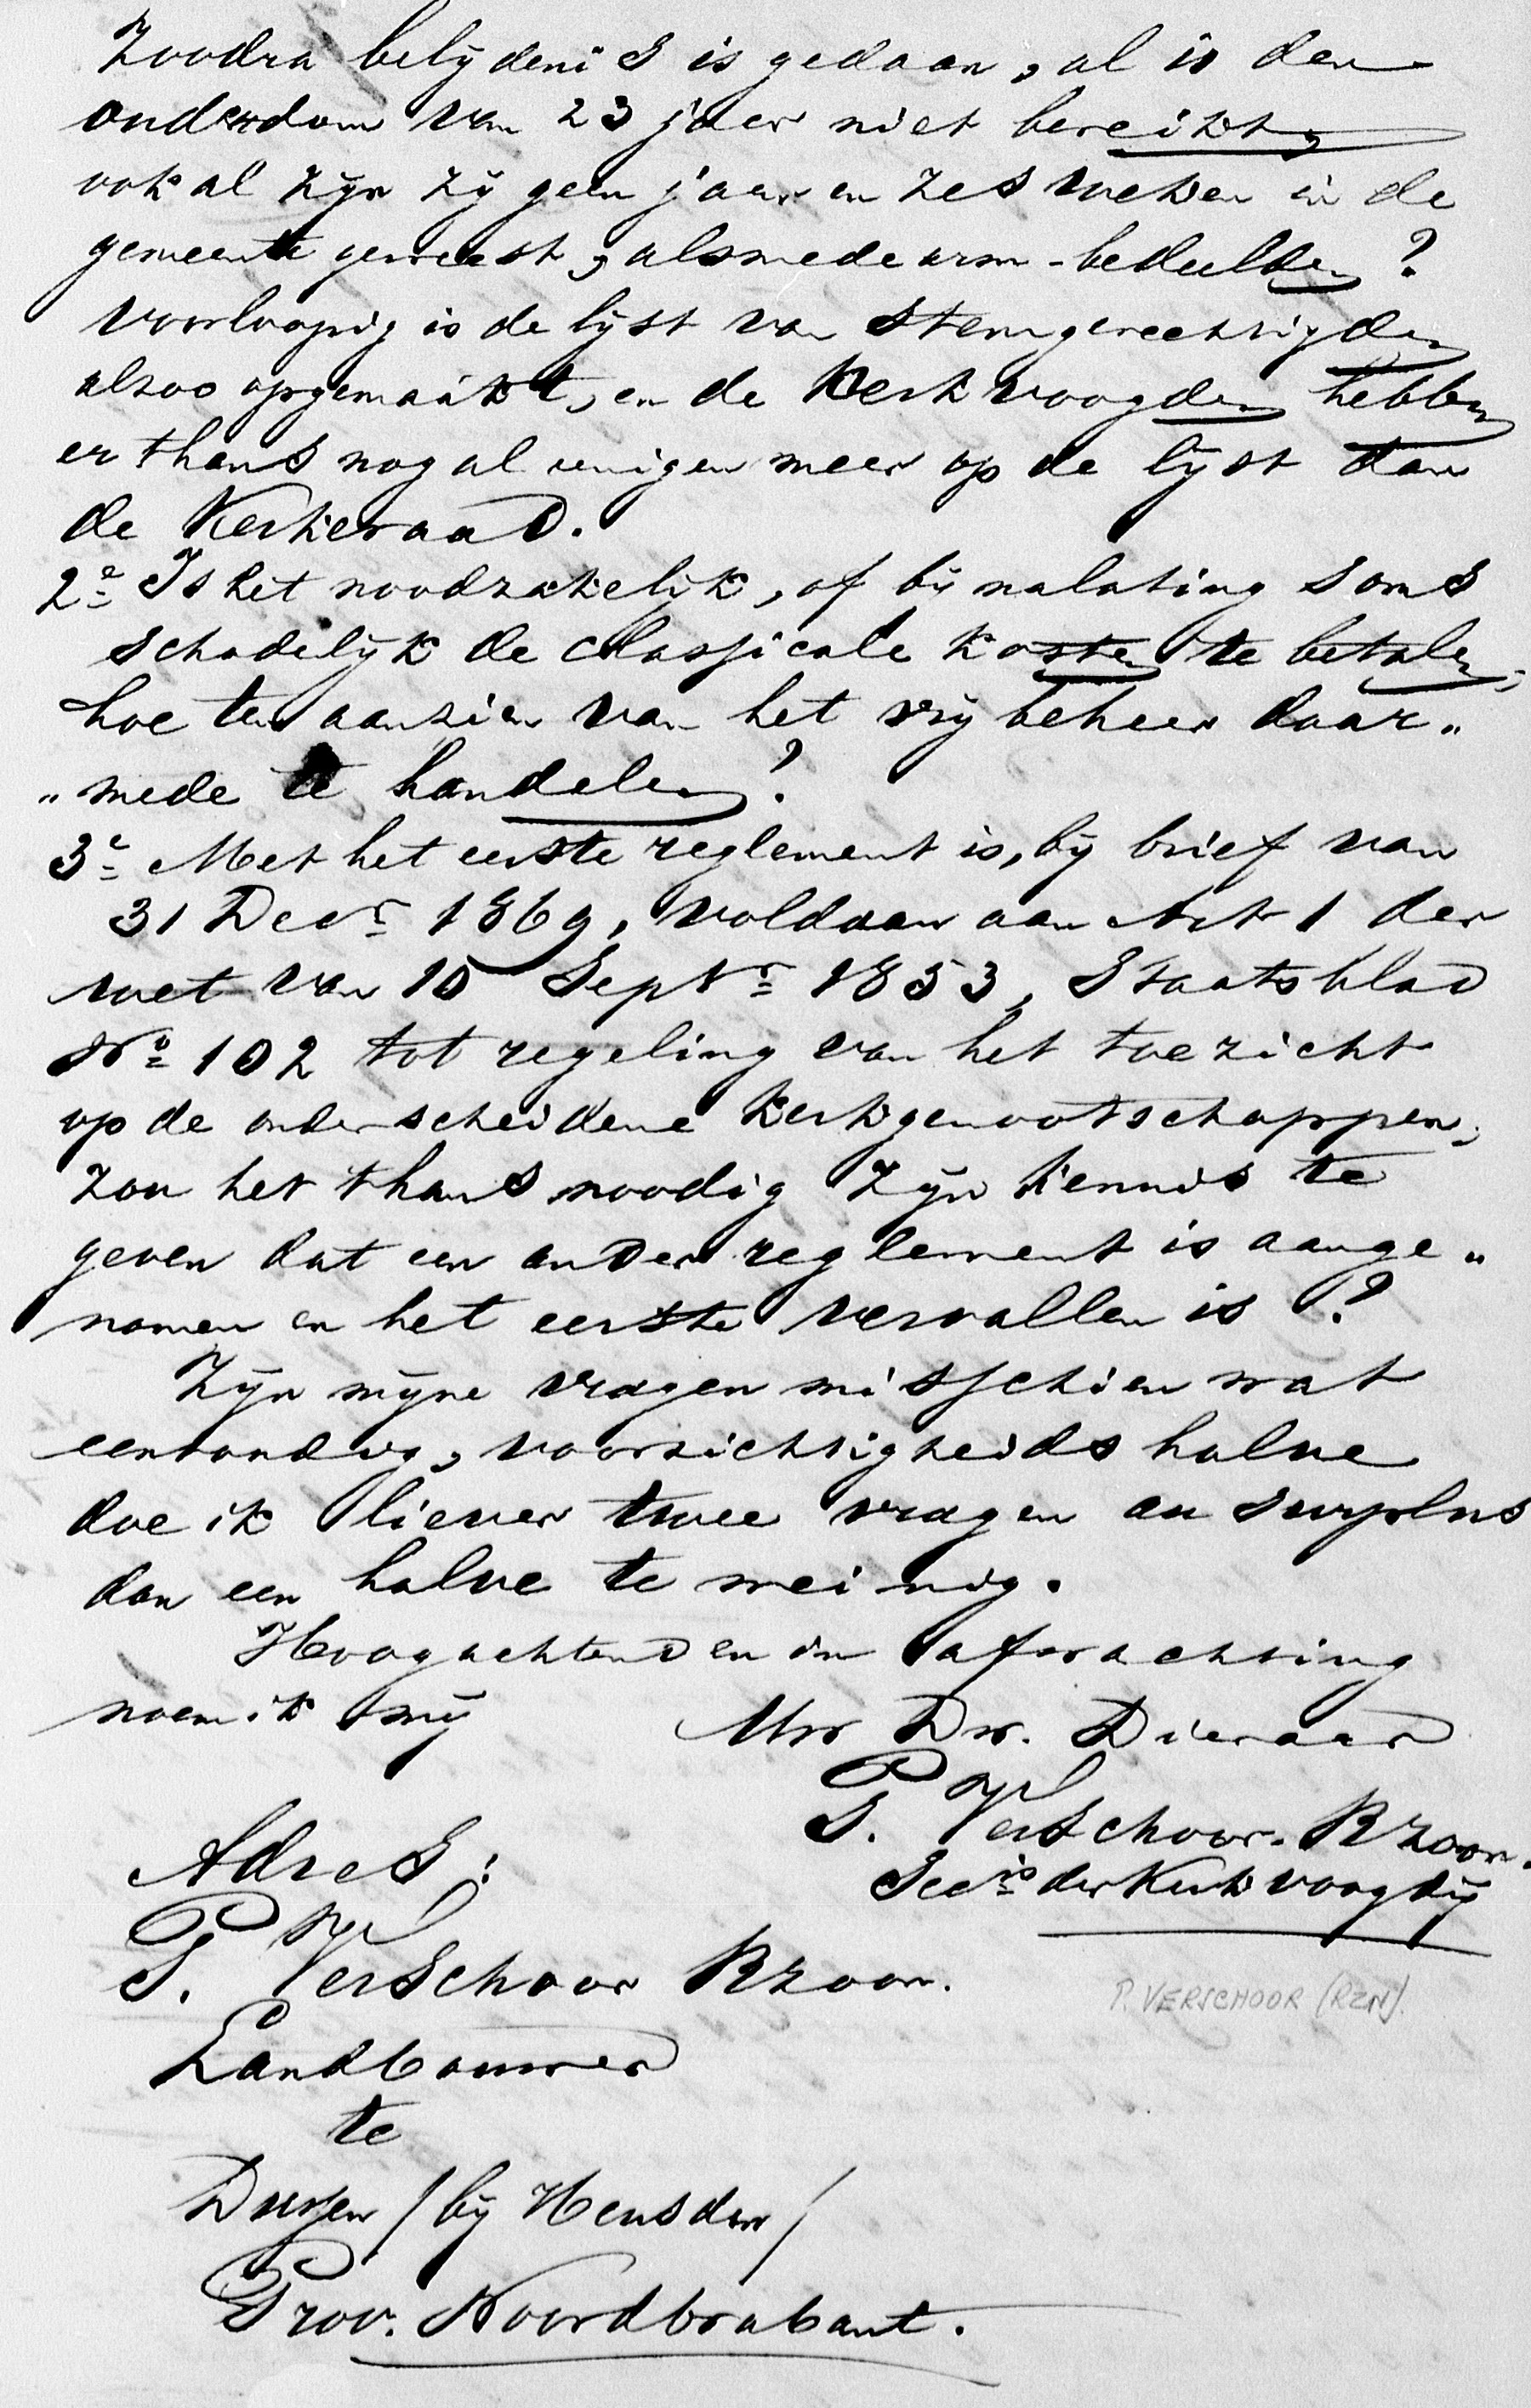 Zoodra belijdenis is gedaan, al is den
ouderdom van 23 jaar niet bereikt,
ook al zijn zij geen jaar en zes weken in de
gemeente geweest, alsmede arm-bedeelden?
Voorloopig is de lijst van stemgerechtigden
alzoo opgemaakt, en de Kerkvoogden hebben
er thans nog al eenigen meer op de lijst dan
de Kerkeraad.
2e Is het noodzakelijk, of bij nalating soms
schadelijk de classicale kosten te betalen;
hoe ten aanzien van het vrij beheer daar„
„mede te handelen?
3e Met het eerste reglement is, bij brief van
31 Decr 1869, voldaan aan Art 1 der
wet van 10 Septr 1853, Staatsblad
No 102 tot regeling van het toezicht
op de onderscheidene kerkgenootschappen;
zou het thans noodig zijn kennis te
geven dat een ander reglement is aange„
nomen en het eerste vervallen is?
Zijn mijne vragen misschien wat
eenvoudig, voorzichtigheidshalve
doe ik liever twee vragen au surplus
dan een halve te weinig.
Hoogachtend en in afwachting
noem ik mij Uw Dw. Dienaar
P. Verschoor. Rzoon.
Secris der Kerkvoogdij
Adres:
P. Verschoor Rzoon.
P. VERSCHOOR (RZN).
Landbouwer
te
Dussen / bij Heusden /
Prov. Noordbrabant.